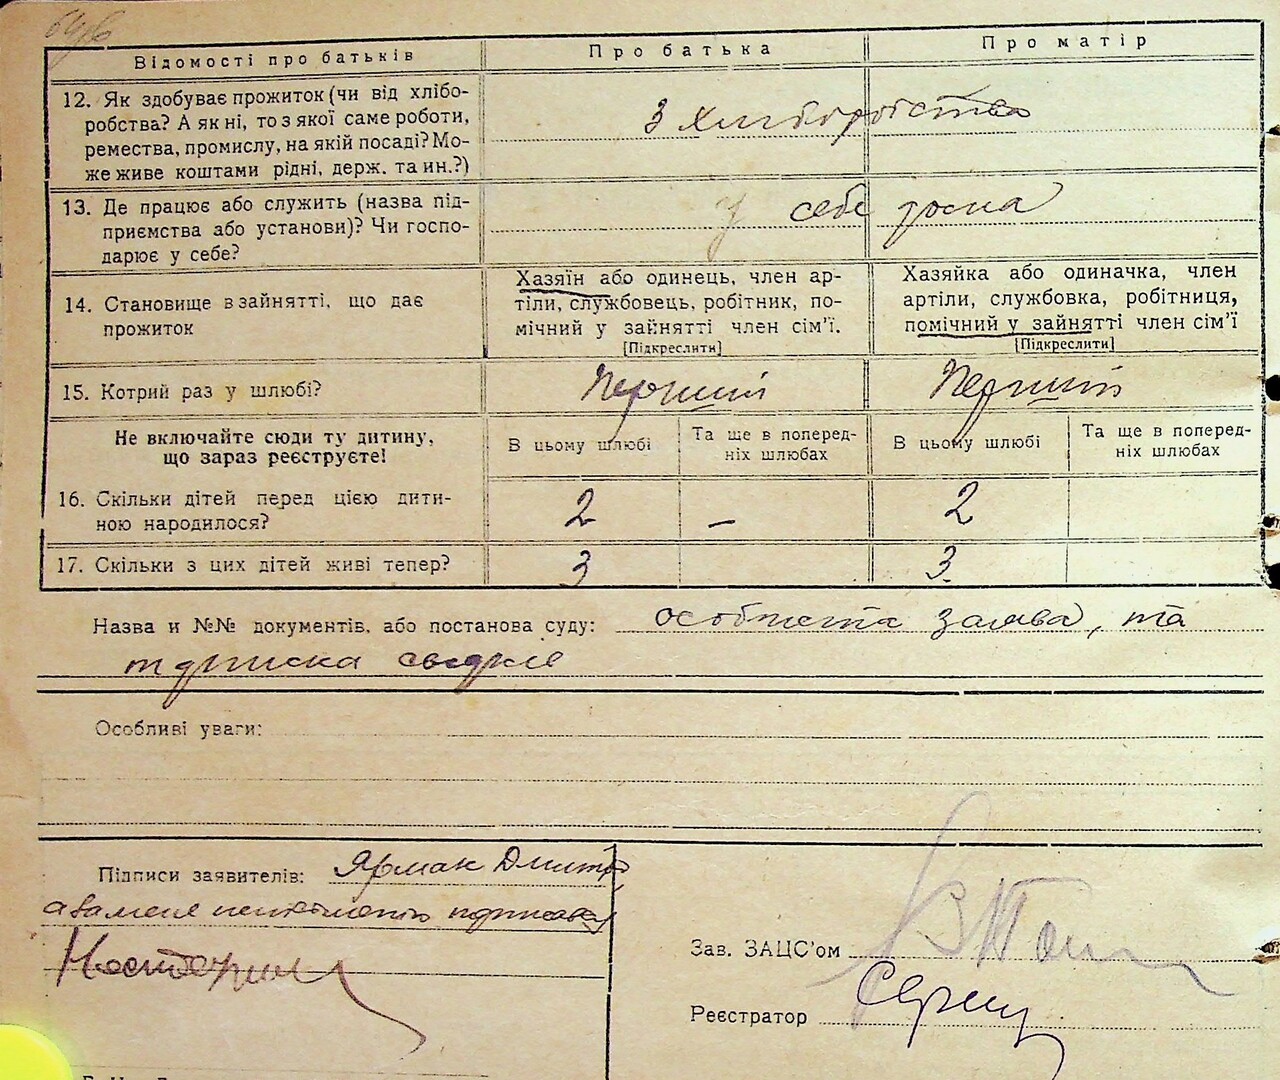 Відомості про батьків
Про батька
Про матір
12. Як здобуває прожиток (чи від хлібо-
робства? А як ні, то з якої саме роботи,
ремества, промислу, на якій посаді? Мо-
же живе коштами рідні, держ. та ин.?)
З хліборобства
13. Де працює або служить (назва під-
приємства або установи)? Чи госпо-
дарює у себе?
у себе дома
14. Становище в зайнятті, що дає
прожиток
Хазяїн або одинець, член ар-
тіли, службовець, робітник, по-
мічний у зайнятті член сім'ї.
[Підкреслити]
Хазяйка або одиначка, член
артіли, службовка, робітниця,
помічний у зайнятті член сім'ї
[Підкреслити]
15. Котрий раз у шлюбі?
Перший
Перший
Не включайте сюди ту дитину,
що зараз реєструєте!
В цьому шлюбі
Та ще в поперед-
ніх шлюбах
В цьому шлюбі
Та ще в поперед-
ніх шлюбах
16. Скільки дітей перед цією дити-
ною народилося?
2
–
2
17. Скільки з цих дітей живі тепер?
3
3
Назва и №№ документів, або постанова суду: особиста заява, та
підписка свідків
Особливі уваги:
Підписи заявителів: Ярмак Дмитро
Зав. ЗАЦС'ом
Реєстратор